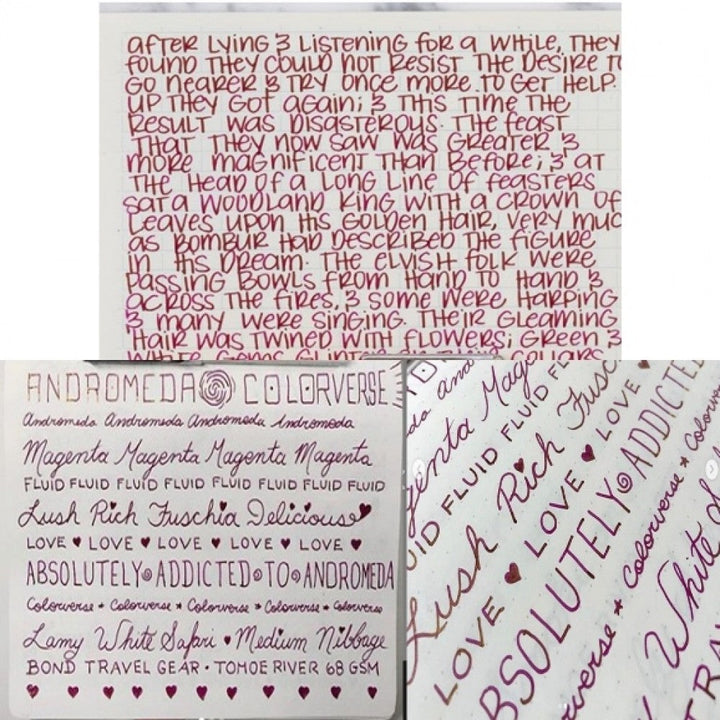 after Lying & Listening for a while, they
found they could not resist the desire to
go nearer & try once more to get help.
up they got again; & this time the
result was disasterous. The feast
that they now saw was greater &
more magnificent than before; & at
the head of a long line of feasters
sat a woodland king with a crown of
leaves upon his golden hair, very muc
as Bombur had described the figure
in his dream. The elvish folk were
passing bowls from hand to hand &
across the fires, & some were harping
& many were singing. Their gleaming
hair was twined with flowers; green &
white gems
ANDROMEDA COLORVERSE
Andromeda Andromeda Andromeda Andromeda
Magenta Magenta Magenta Magenta
FLUID FLUID FLUID FLUID FLUID FLUID FLUID FLUID
Lush Rich Fuschia Delicious♥
LOVE ♥ LOVE ♥ LOVE ♥ LOVE ♥ LOVE ♥
ABSOLUTELY ADDICTED TO ANDROMEDA
Colorverse * Colorverse * Colorverse * Colorverse * Colorverse
Lamy White Safari ♥ Medium Nibbage
BOND TRAVEL GEAR • TOMOE RIVER 68 GSM
♥ ♥ ♥ ♥ ♥ ♥ ♥ ♥ ♥ ♥ ♥
da And
genta Mag
UID FLUID FLUID FLUID F
Lush Rich Fusc
LOVE ♥ LOVE ♥ LOVE ♥
BSOLUTELY ADDICTED
verse * Colorverse * Colorv
y White S
TRA